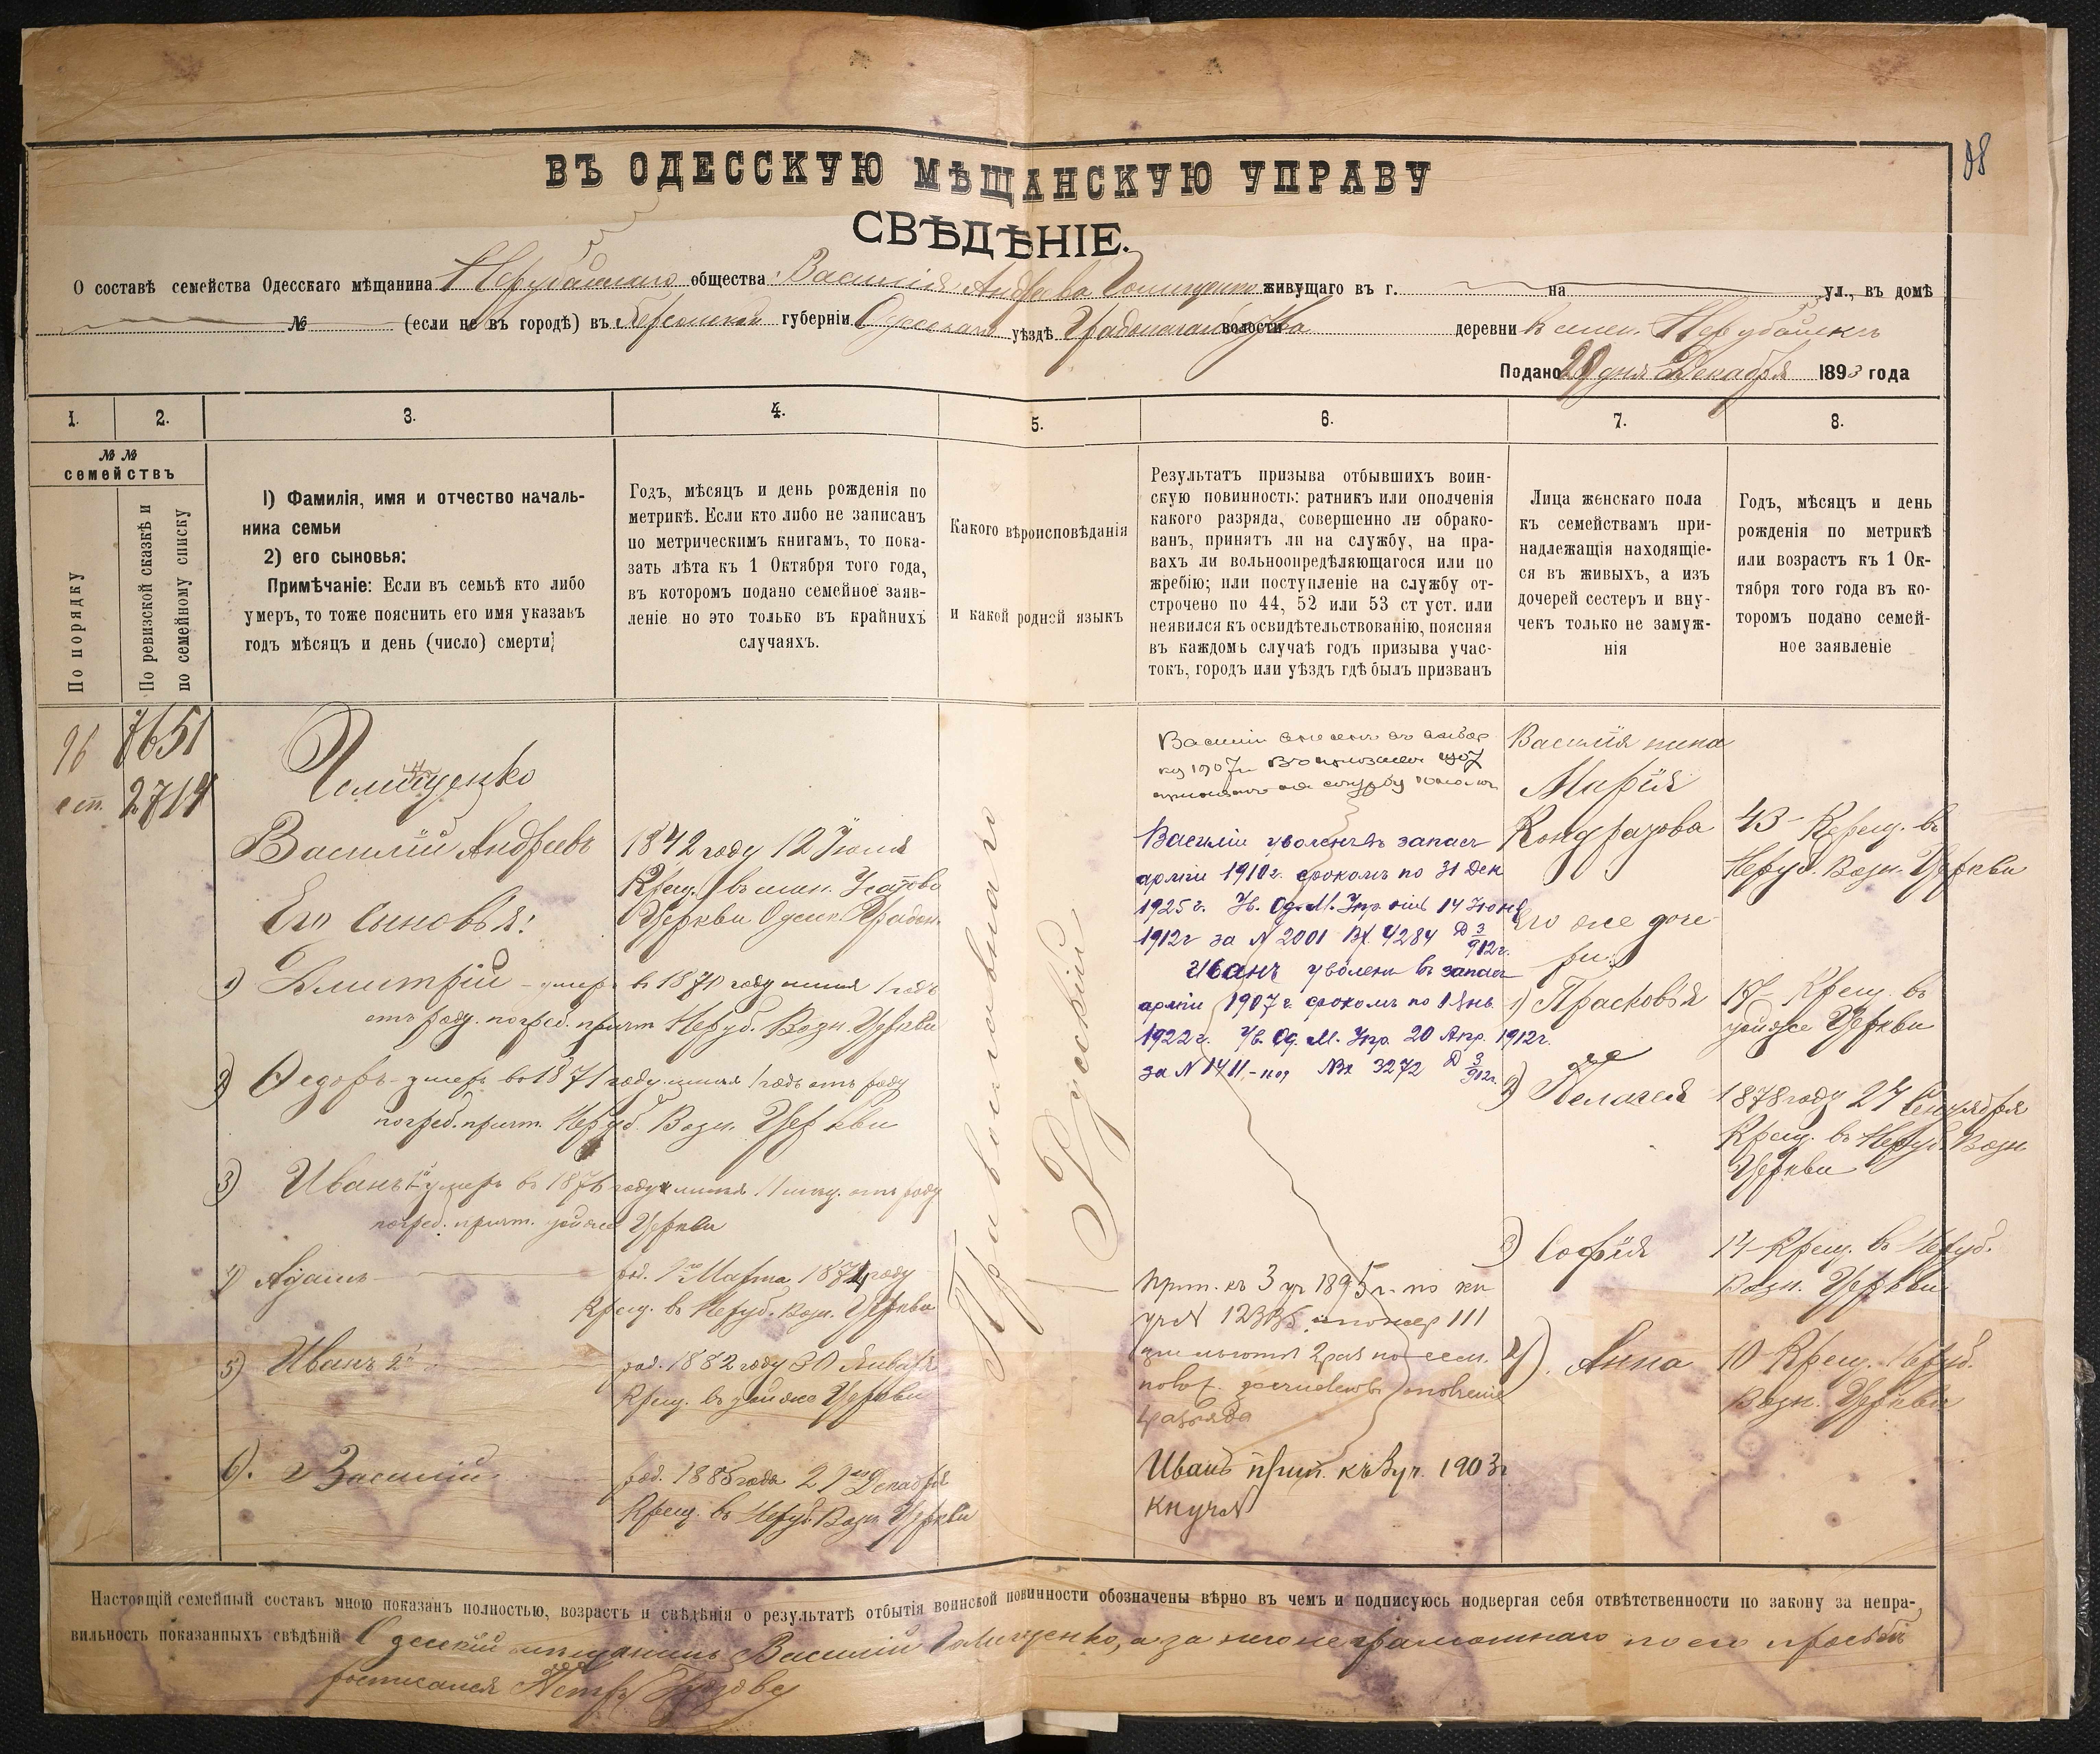 98
ВЪ ОДЕССКУЮ МѢЩАНСКУЮ УПРАВУ
СВѢДѢНІЕ.
О составѣ семейства Одесскаго мѣщанина Нерубайскаго общества Василія Андреева живущаго въ г. на ул., въ домѣ
№ (если не въ городѣ) въ Херсонской губерніи Одесскаго уѣздѣ волости деревни в селен. Нерубайскъ
Подано 29 дня Декабря 1893 года
1. 2. 3. 4. 5. 6. 7. 8.
№ №
семействъ
По порядку
По ревизской сказкѣ и
по семейному списку
1) Фамилія, имя и отчество началь-
ника семьи
2) его сыновья:
Примѣчаніе: Если въ семьѣ кто либо
умеръ, то тоже пояснить его имя указавъ
годъ мѣсяцъ и день (число) смерти;
Годъ, мѣсяцъ и день рожденія по
метрикѣ. Если кто либо не записанъ
по метрическимъ книгамъ, то пока-
зать лѣта къ 1 Октября того года,
въ которомъ подано семейное заяв-
леніе но это только въ крайнихъ
случаяхъ.
Какого вѣроисповѣданія
и какой родной языкъ
Результатъ призыва отбывшихъ воин-
скую повинность: ратникъ или ополченія
какого разряда, совершенно ли обрако-
ванъ, принятъ ли на службу, на пра-
вахъ ли вольноопредѣляющагося или по
жребію; или поступленіе на службу от-
строчено по 44, 52 или 53 ст уст. или
неявился къ освидѣтельствованію, поясняя
въ каждомъ случаѣ годъ призыва учас-
токъ, городъ или уѣздъ гдѣ былъ призванъ
Лица женскаго пола
къ семействамъ при-
надлежащія находящіе-
ся въ живыхъ, а изъ
дочерей сестеръ и вну-
чекъ только не замуж-
нія
Годъ, мѣсяцъ и день
рожденія по метрикѣ
или возрастъ къ 1 Ок-
тября того года въ ко-
торомъ подано семей-
ное заявленіе
96
7651
2714
Василій Андреевъ
1842 году 12 Іюля
Крещ. в
Церкви Одесск. Градон.
Его сыновья:
1) Дмитрій - умеръ в 1870 году имѣя 1 годъ
отъ роду. погреб. причт Неруб. Возн. Церкви
2) Ѳедоръ - умеръ в 1871 году имѣя 1 годъ отъ роду
погреб. причт. Неруб. Возн. Церкви
3) Иванъ 1й умеръ в 1876 году имѣя отъ роду
погреб. причт. той же Церкви
4) Адамъ род. 1го Марта 1874 году
Крещ. в Неруб. Возн. Церкви
5) Иванъ 2й род. 1882 году 30 Января
Крещ. въ той же Церкви
6). Василій род. 1885 года 29го Декабря
Крещ. в Неруб. Возн. Церкви
Православнаго
Русскій
Василій внесенъ въ
1907
Василій уволенъ въ запасъ
арміи 1910 г. срокомъ по 31 Дек
1925 г. Ув. Од. М. Упр. отъ 14 Іюня
1912 г за N 2001 Вх. 4284 Д 3/912 г.
Иванъ уволенъ въ запасъ
арміи 1907 г. срокомъ по 1 Янв
1922 г. Ув. Од. М. Упр. 20 Апр. 1912 г.
за N 1411 Вх 3272 Д 3/912 г.
прип. къ 3 уч 1895 г. по кн
уч N
разряда
Иванъ прип. къ 3 уч. 1903 г
кн уч N
Василія жена
Марія
Кондратова
43 - Крещ. в
Неруб. Возн. Церкви
Его же доче-
ри:
1) Прасковья
17 Крещ. в
той же Церкви
2) Пелагея
1878 году 24 Сентября
Крещ. въ Неруб. Возн
Церкви
3) Софія
14 - Крещ. въ Неруб.
Возн. Церкви
4). Анна
10 Крещ. Неруб.
Возн. Церкви
Настоящій семейный составъ мною показанъ полностью, возрастъ и свѣдѣнія о результатѣ отбытія воинской повинности обозначены вѣрно въ чемъ и подписуюсь подвергая себя отвѣтственности по закону за непра-
вильность показанныхъ свѣдѣній Одесскій мѣщанинъ Василій а за него неграмотнаго по его просьбѣ
росписался Петръ